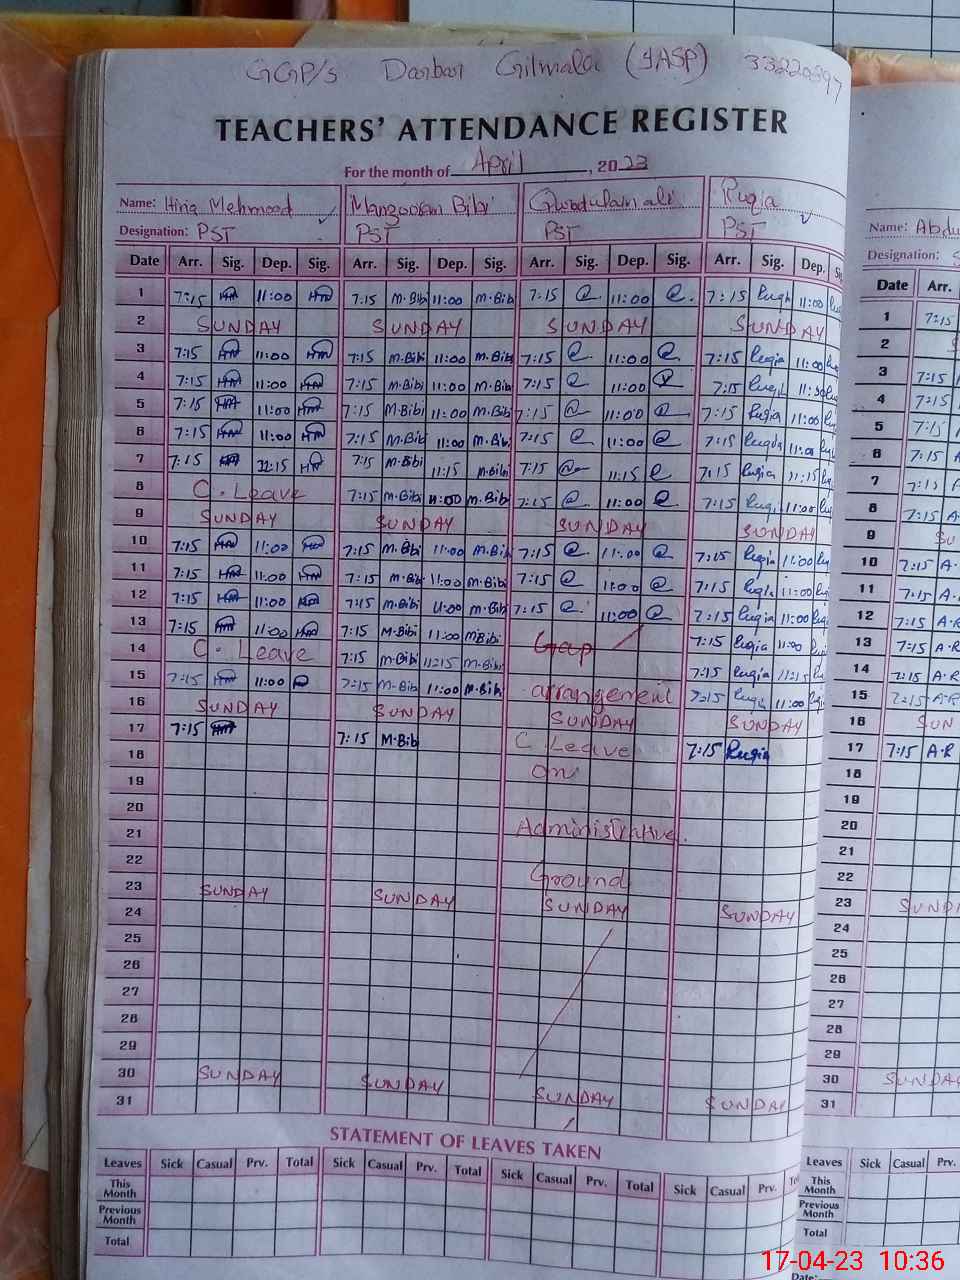 GGP/s Darbar Gilmala (IASP) 33220397
TEACHERS' ATTENDANCE REGISTER
For the month of April, 2023
Name: Hina Mehmood Manzooran Bibi Ruqia Name: Abdu
Designation: PST PST PST PST Designation: S
Date Arr. Sig. Dep. Sig. Arr. Sig. Dep. Sig. Arr. Sig. Dep. Sig. Arr. Sig. Dep. Date Arr.
1 7:15 11:00 7:15 M.Bibi 11:00 M.Bibi 7:15 11:00 7:15 Ruqia 11:00 1 7:15
2 SUNDAY SUNDAY SUNDAY SUNDAY 2 S
3 7:15 11:00 7:15 M.Bibi 11:00 M.Bibi 7:15 11:00 7:15 Ruqia 11:00 3 7:15
4 7:15 11:00 7:15 M.Bibi 11:00 M.Bibi 7:15 11:00 7:15 Ruqia 11:30 4 7:15
5 7:15 11:00 7:15 M.Bibi 11:00 M.Bibi 7:15 11:00 7:15 Ruqia 11:00 5 7:15
6 7:15 11:00 7:15 M.Bibi 11:00 M.Bibi 7:15 11:00 7:15 Ruqia 11:00 6 7:15 A
7 7:15 11:15 7:15 M.Bibi 11:15 M.Bibi 7:15 11:15 7:15 Ruqia 11:15 7 7:15 A
8 C. Leave 7:15 M.Bibi 11:00 M.Bibi 7:15 11:00 7:15 Ruqia 11:00 8 7:15 A
9 SUNDAY SUNDAY SUNDAY SUNDAY 9 SU
10 7:15 11:00 7:15 M.Bibi 11:00 M.Bibi 7:15 11:00 7:15 Ruqia 11:00 10 7:15 A.
11 7:15 11:00 7:15 M.Bibi 11:00 M.Bibi 7:15 11:00 7:15 Ruqia 11:00 11 7:15 A.
12 7:15 11:00 7:15 M.Bibi 11:00 M.Bibi 7:15 11:00 7:15 Ruqia 11:00 12 7:15 A.R
13 7:15 11:00 7:15 M.Bibi 11:00 M.Bibi Gap 7:15 Ruqia 11:00 13 7:15 A.R
14 C. Leave 7:15 M.Bibi 11:15 M.Bibi 7:15 Ruqia 11:15 14 7:15 A.R
15 7:15 11:00 7:15 M.Bibi 11:00 M.Bibi arrangement 7:15 Ruqia 11:00 15 7:15 A.R
16 SUNDAY SUNDAY SUNDAY SUNDAY 16 SUN
17 7:15 7:15 M.Bibi C. Leave 7:15 Ruqia 17 7:15 A.R
18 on 18
19 19
20 Administrative. 20
21 21
22 Ground 22
23 SUNDAY SUNDAY SUNDAY SUNDAY 23 SUND
24 24
25 25
26 26
27 27
28 28
29 29
30 SUNDAY SUNDAY SUNDAY SUNDAY 30 SUNDAY
31 31
STATEMENT OF LEAVES TAKEN
Leaves Sick Casual Prv. Total Sick Casual Prv. Total Sick Casual Prv. Total Sick Casual Prv. Leaves Sick Casual Prv.
This Month This Month
Previous Month Previous Month
Total Total
Date:
17-04-23 10:36